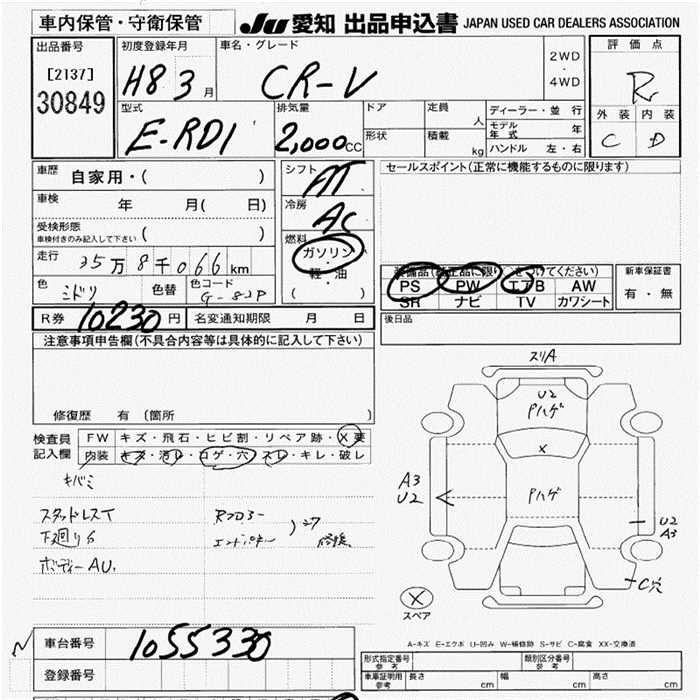 車内保管・守衛保管
JU 愛知 出品申込書 JAPAN USED CAR DEALERS ASSOCIATION
出品番号
[2137]
30849
初度登録年月
H8 3月
車名・グレード
CR-V
2WD
・
4WD
評価点
R
外装 内装
C D
型式
E-RD1
排気量
2,000cc
ドア
定員
人
形状
積載
kg
ディーラー・並行
モデル年式 年
ハンドル 左・右
車歴 自家用・( )
車検 年 月( 日)
受検形態
車検付きのみ記入して下さい ( )
走行 万8千066km
色 ミドリ
色替
色コード
シフト
AT
冷房
AC
燃料
ガソリン
・
軽・油
( )
セールスポイント(正常に機能するものに限ります)
装備品(純正品に限り○をつけてください)
PS PW エアB AW
SR ナビ TV カワシート
新車保証書
有・無
R券 10230円
名変通知期限 月 日
後日品
注意事項申告欄(不具合内容等は具体的に記入して下さい)
修復歴 有 (箇所 )
検査員記入欄
FW キズ・飛石・ヒビ割・リペア跡・X要
内装 キズ・汚レ・コゲ・穴・スレ・キレ・破レ
キバミ
スタッドレスT
下廻りS
ボディーAU.
Rフロアー
エンドパネル
修復
スリA
U2
Pハゲ
X
Pハゲ
A3
U2
U2
A3
C穴
X
スペア
A-キズ E-エクボ U-凹み W-補修跡 S-サビ C-腐食 XX-交換済
車台番号 1055330
登録番号
形式指定番号
参考
類別区分番号
参考
車庫証明用
参考
長さ cm
幅 cm
高さ cm